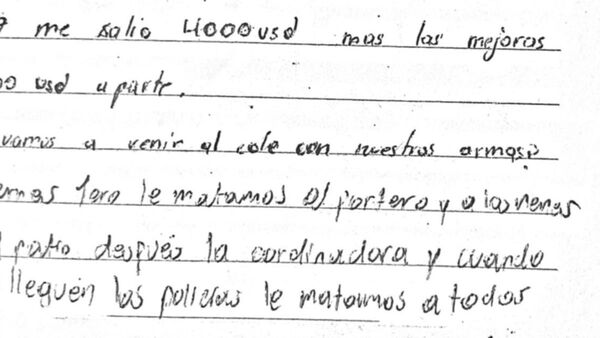 me salio 4000 usd mas las mejoras
usd aparte.
vamos a venir al cole con nuestras armas
1ero le matamos al portero y a las nenas
patio después la cordinadora y cuando
lleguen los policias le matamos a todos